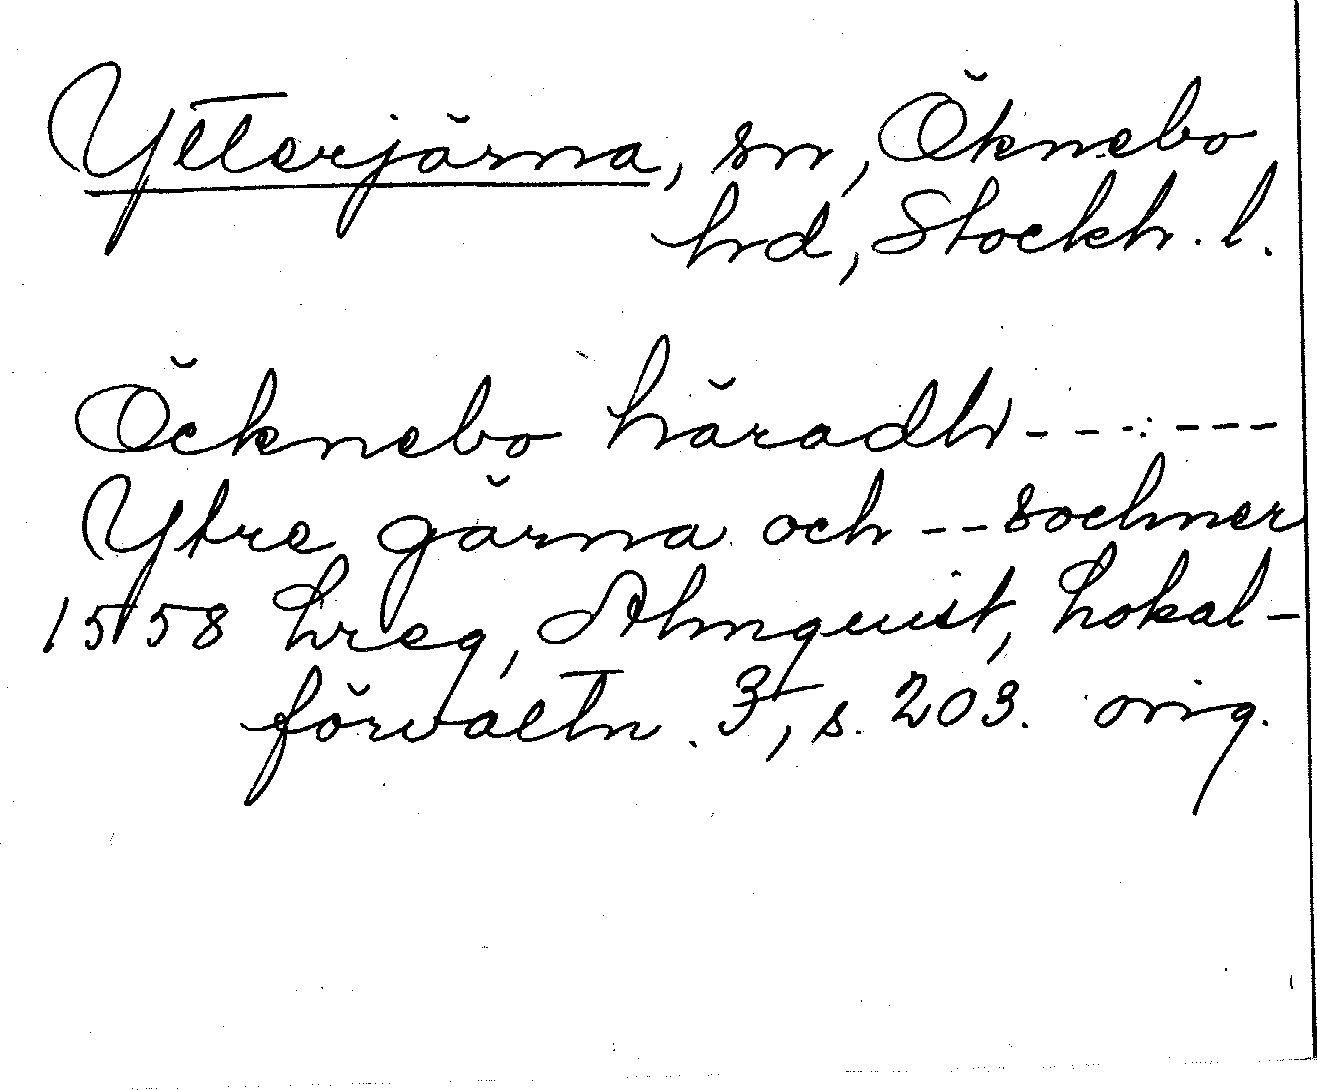 Ytterjärna, sn, Öknebo
hrd, Stockh. l.
Öcknebo häradh - - - - - -
Ytre gärna och - - sochner
1558 hreg, Almquist, Lokal-
förvaltn. 3, s. 203. orig.